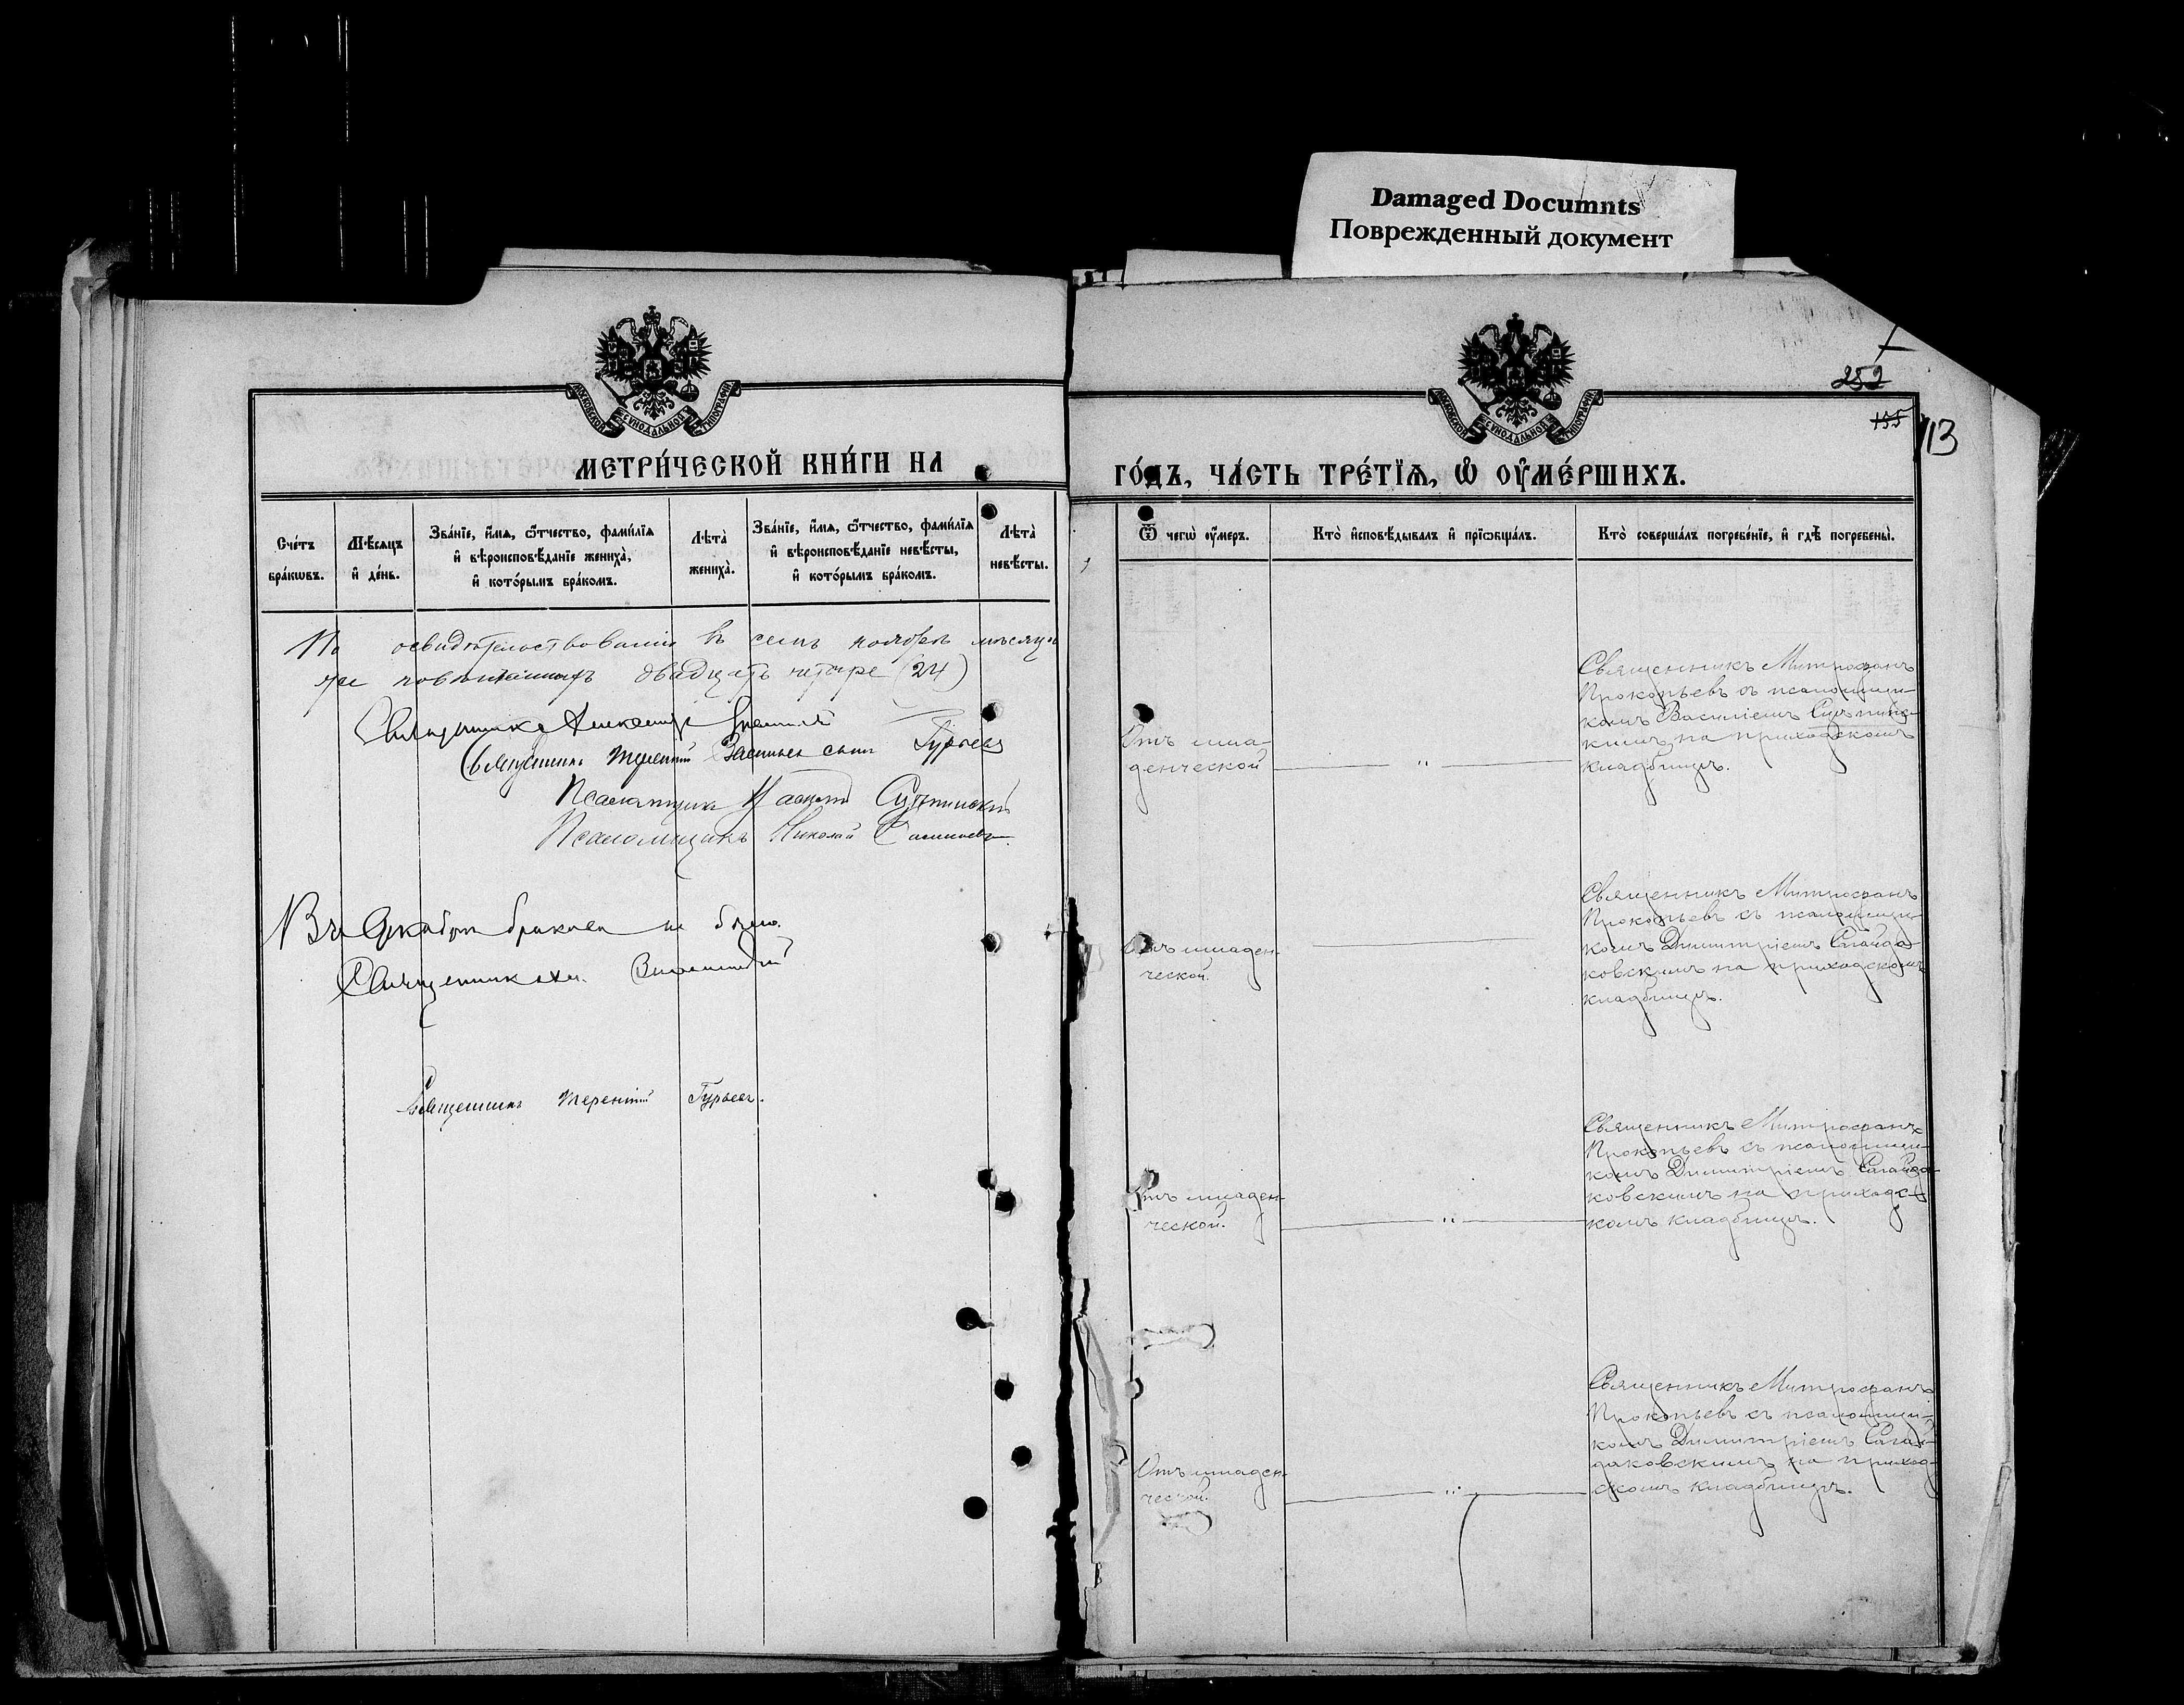 Damaged Documnts
Поврежденный документ
МОСКОВСКОЙ СѴНОДАЛЬНОЙ ТИПОГРАФІИ
МЕТРИ́ЧЕСКОЙ КНИ́ГИ НА
Сче́тъ бра́кѡвъ.
Мѣ́сяцъ и҆ де́нь.
Зва́нїе, и҆́мѧ, ѻ҆́тчество, фами́лїѧ
и҆ вѣроисповѣ́данїе жениха̀,
и҆ кото́рымъ бра́комъ.
Лѣта̀ жениха̀.
Зва́нїе, и҆́мѧ, ѻ҆́тчество, фами́лїѧ
и҆ вѣроисповѣ́данїе невѣ́сты,
и҆ кото́рымъ бра́комъ.
Лѣта̀ невѣ́сты.
По освидѣтельствованіи въ семъ ноябрѣ мѣсяцѣ
двадцать четыре (24)
Священникъ Александръ
Священникъ Терентій Васильевъ сынъ Гурьевъ
Псаломщикъ
Псаломщикъ Николай
Въ Декабрѣ браковъ не было.
Священникъ Ал.
Священникъ Терентій Гурьевъ.
МОСКОВСКОЙ СѴНОДАЛЬНОЙ ТИПОГРАФІИ
252
155
13
ГО́ДЪ, ЧА́СТЬ ТРЕ́ТЇѦ, Ѡ҆ ОУ҆МЕ́РШИХЪ.
Ѿ чегѡ̀ ᲂу҆́меръ.
Кто̀ и҆сповѣ́дывалъ и҆ прїѡбща́лъ.
Кто̀ соверша́лъ погребе́нїе, и҆ гдѣ̀ погребены̀.
Отъ мла-
денческой
"
Священникъ Митрофанъ
Прокопьевъ съ псаломщи-
комъ Василіемъ
кимъ на приходскомъ
кладбищѣ.
Отъ младен-
ческой.
Священникъ Митрофанъ
Прокопьевъ съ псаломщи-
комъ Димитріемъ Сагайда-
ковскимъ на приходскомъ
кладбищѣ.
Отъ младен-
ческой.
"
Священникъ Митрофанъ
Прокопьевъ съ псаломщи-
комъ Димитріемъ Сагайда-
ковскимъ на приходс-
комъ кладбищѣ.
Отъ младен-
ческой.
"
Священникъ Митрофанъ
Прокопьевъ съ псаломщи-
комъ Димитріемъ Сагай-
даковскимъ на приход-
скомъ кладбищѣ.